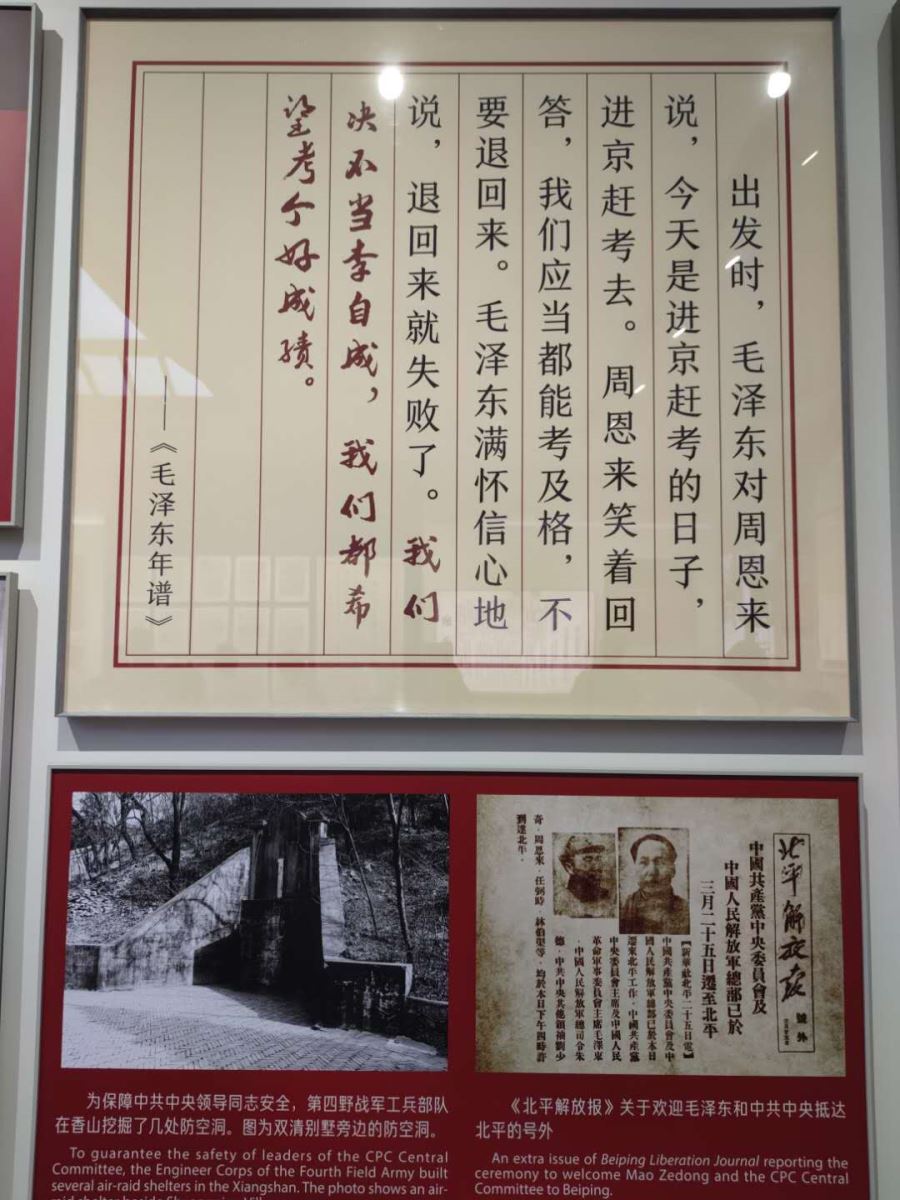 出发时，毛泽东对周恩来
说，今天是进京赶考的日子，
进京赶考去。周恩来笑着回
答，我们应当都能考及格，不
要退回来。毛泽东满怀信心地
说，退回来就失败了。我们
决不当李自成，我们都希
望考个好成绩。
——《毛泽东年谱》
为保障中共中央领导同志安全，第四野战军工兵部队
在香山挖掘了几处防空洞。图为双清别墅旁边的防空洞。
To guarantee the safety of leaders of the CPC Central
Committee, the Engineer Corps of the Fourth Field Army built
several air-raid shelters in the Xiangshan. The photo shows an air-
北平解放报
號外
中國共產黨中央委員會及
中國人民解放軍總部已於
三月二十五日遷至北平
【新華社北平二十五日電】
中國共產黨中央委員會及中
國人民解放軍總部已於本日
遷來北平工作。中國共產黨
中央委員會主席及中國人民
革命軍事委員會主席毛澤東
，中國人民解放軍總司令朱
德，中共中央其他領袖劉少
奇，周恩來，任弼時，林伯渠等，均於本日下午四時許
到達北平。
《北平解放报》关于欢迎毛泽东和中共中央抵达
北平的号外
An extra issue of Beiping Liberation Journal reporting the
ceremony to welcome Mao Zedong and the CPC Central
Committee to Beiping.